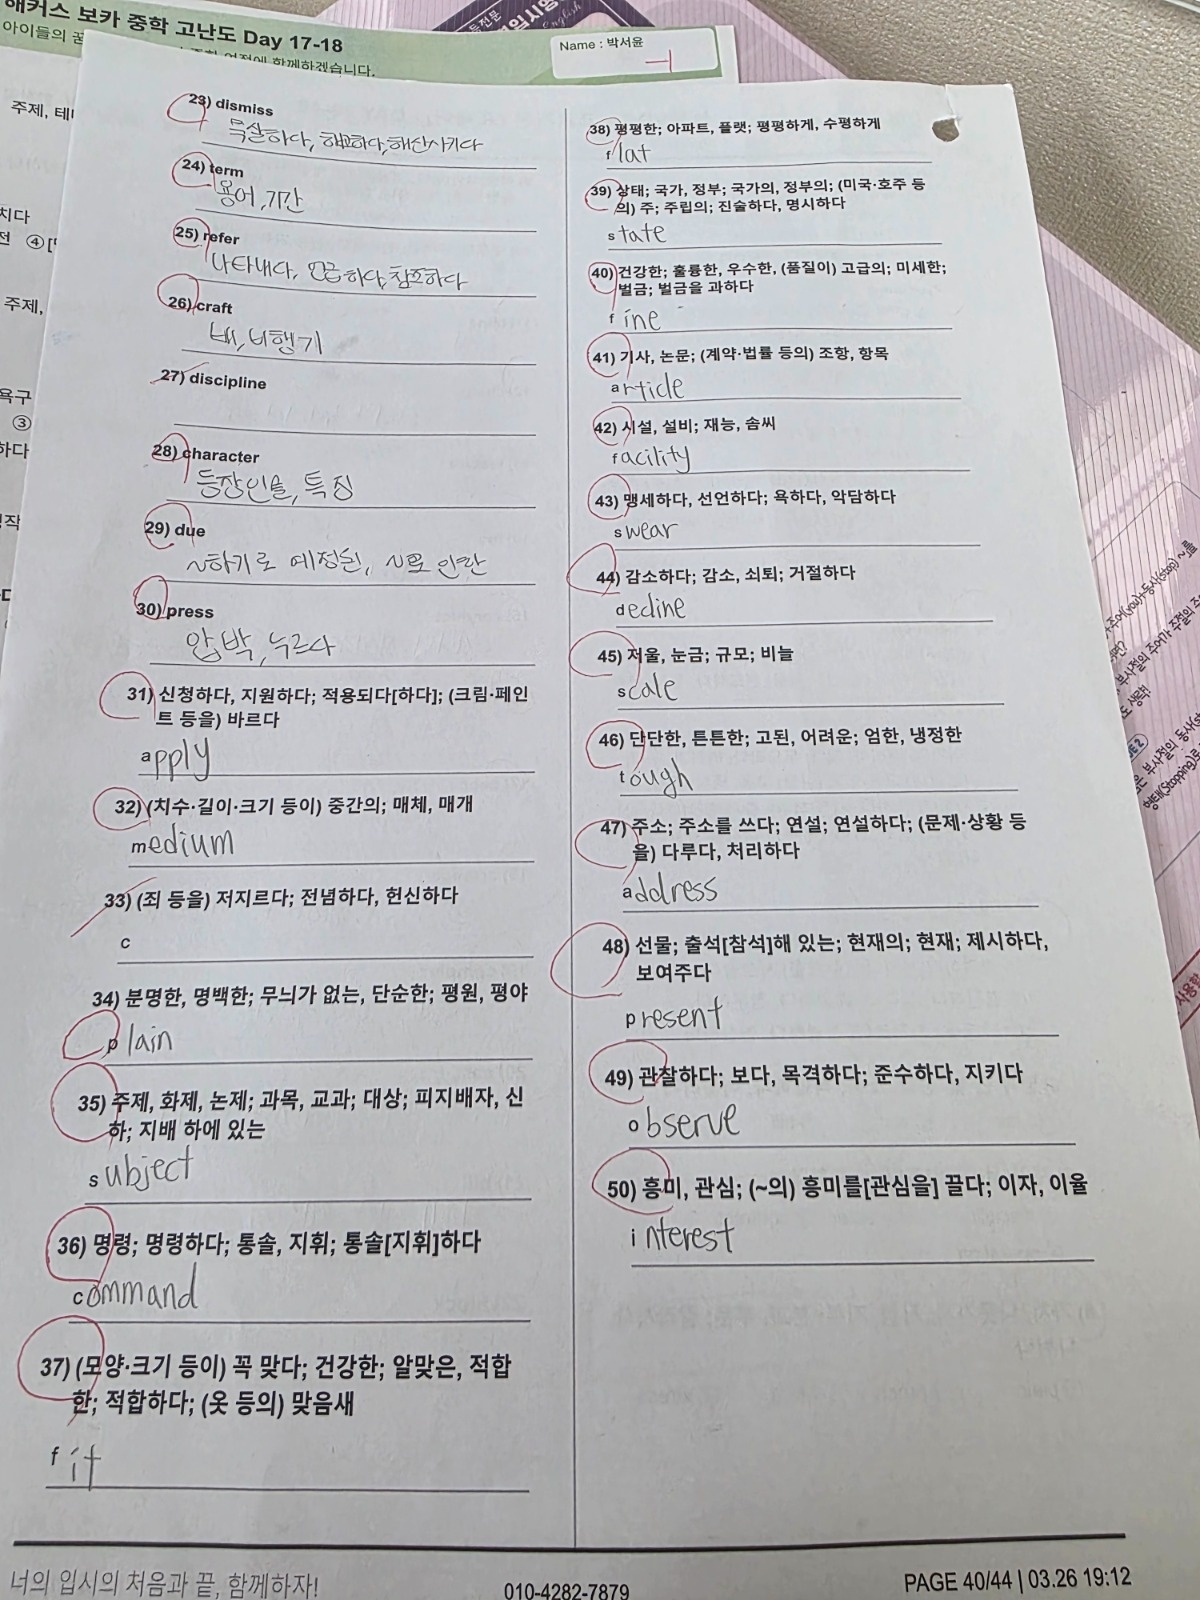 해커스 보카 중학 고난도 Day 17-18
아이들의 꿈
여정에 함께하겠습니다.
Name : 박서윤
-1
English
주제, 테
치다
전 ④[
주제,
욕구
③
하다
23) dismiss
묵살하다, 해고하다, 해산시키다
24) term
용어, 기간
25) refer
나타내다, 언급하다, 참조하다
26) craft
배, 비행기
27) discipline
28) character
등장인물, 특징
29) due
~하기로 예정된, ~로 인한
30) press
압박, 누르다
31) 신청하다, 지원하다; 적용되다[하다]; (크림·페인
트 등을) 바르다
apply
32) (치수·길이·크기 등이) 중간의; 매체, 매개
medium
33) (죄 등을) 저지르다; 전념하다, 헌신하다
c
34) 분명한, 명백한; 무늬가 없는, 단순한; 평원, 평야
plain
35) 주제, 화제, 논제; 과목, 교과; 대상; 피지배자, 신
하; 지배 하에 있는
subject
36) 명령; 명령하다; 통솔, 지휘; 통솔[지휘]하다
command
37) (모양·크기 등이) 꼭 맞다; 건강한; 알맞은, 적합
한; 적합하다; (옷 등의) 맞음새
fit
38) 평평한; 아파트, 플랫; 평평하게, 수평하게
flat
39) 상태; 국가, 정부; 국가의, 정부의; (미국·호주 등
의) 주; 주립의; 진술하다, 명시하다
state
40) 건강한; 훌륭한, 우수한, (품질이) 고급의; 미세한;
벌금; 벌금을 과하다
fine
41) 기사, 논문; (계약·법률 등의) 조항, 항목
article
42) 시설, 설비; 재능, 솜씨
facility
43) 맹세하다, 선언하다; 욕하다, 악담하다
swear
44) 감소하다; 감소, 쇠퇴; 거절하다
decline
45) 저울, 눈금; 규모; 비늘
scale
46) 단단한, 튼튼한; 고된, 어려운; 엄한, 냉정한
tough
47) 주소; 주소를 쓰다; 연설; 연설하다; (문제·상황 등
을) 다루다, 처리하다
address
48) 선물; 출석[참석]해 있는; 현재의; 현재; 제시하다,
보여주다
present
49) 관찰하다; 보다, 목격하다; 준수하다, 지키다
observe
50) 흥미, 관심; (~의) 흥미를[관심을] 끌다; 이자, 이율
interest
너의 입시의 처음과 끝, 함께하자!
010-4282-7879
PAGE 40/44 | 03.26 19:12